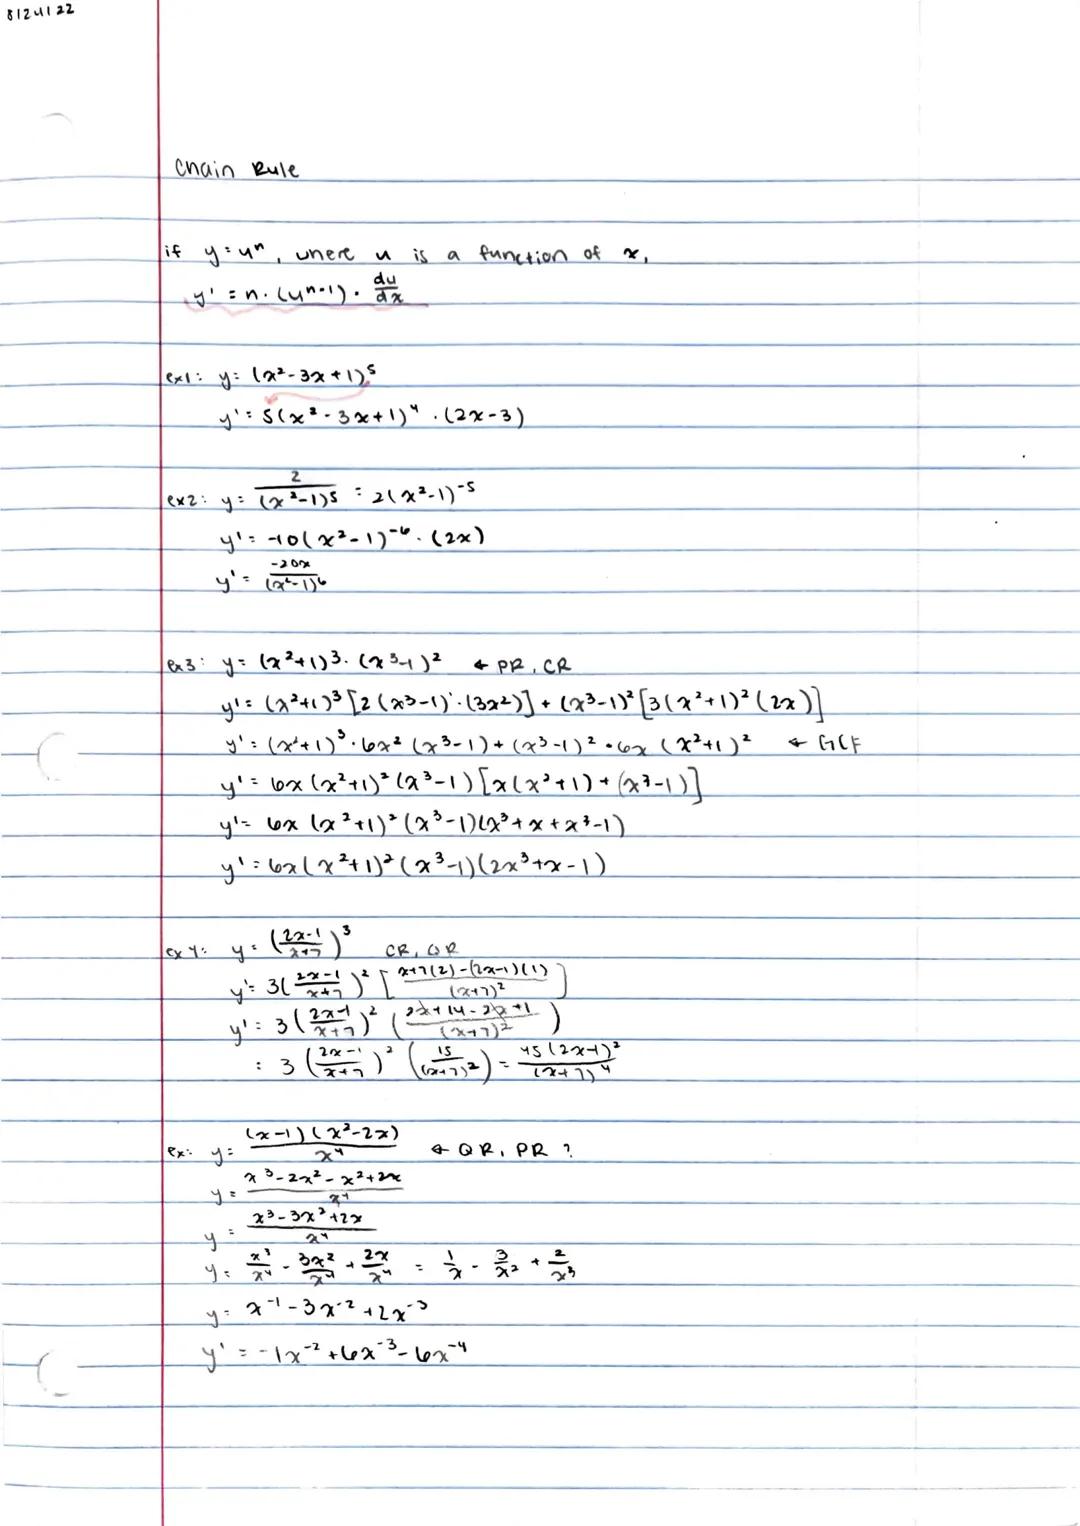 8/24/22
Chain Rule
if y = uⁿ, where u is a function of x,
y' = n · (uⁿ⁻¹) · du/dx
ex1: y = (x²-3x+1)⁵
y' = 5(x²-3x+1)⁴ · (2x-3)
ex2: y = 2/(x²-1)⁵ = 2(x²-1)⁻⁵
y' = -10(x²-1)⁻⁶ · (2x)
y' = -20x/(x²-1)⁶
ex3: y = (x²+1)³ · (x³-1)² ← PR, CR
y' = (x²+1)³[2(x³-1)'·(3x²)] + (x³-1)²[3(x²+1)²(2x)]
y' = (x²+1)³ · 6x²(x³-1) + (x³-1)² · 6x(x²+1)² ← GCF
y' = 6x(x²+1)²(x³-1)[x(x²+1) + (x³-1)]
y' = 6x(x²+1)²(x³-1)(x³+x+x³-1)
y' = 6x(x²+1)²(x³-1)(2x³+x-1)
ex 4: y = ((2x-1)/(x+7))³ CR, QR
y' = 3((2x-1)/(x+7))² [(x+7(2)-(2x-1)(1))/(x+7)²]
y' = 3((2x-1)/(x+7))² ((2x+14-2x+1)/(x+7)²)
= 3((2x-1)/(x+7))² (15/(x+7)²) = 45(2x-1)²/(x+7)⁴
ex: y = (x-1)(x²-2x)/x⁴ ← QR, PR ?
y = (x³-2x²-x²+2x)/x⁴
y = (x³-3x²+2x)/x⁴
y = x³/x⁴ - 3x²/x⁴ + 2x/x⁴ = 1/x - 3/x² + 2/x³
y = x⁻¹-3x⁻²+2x⁻³
y' = -1x⁻²+6x⁻³-6x⁻⁴